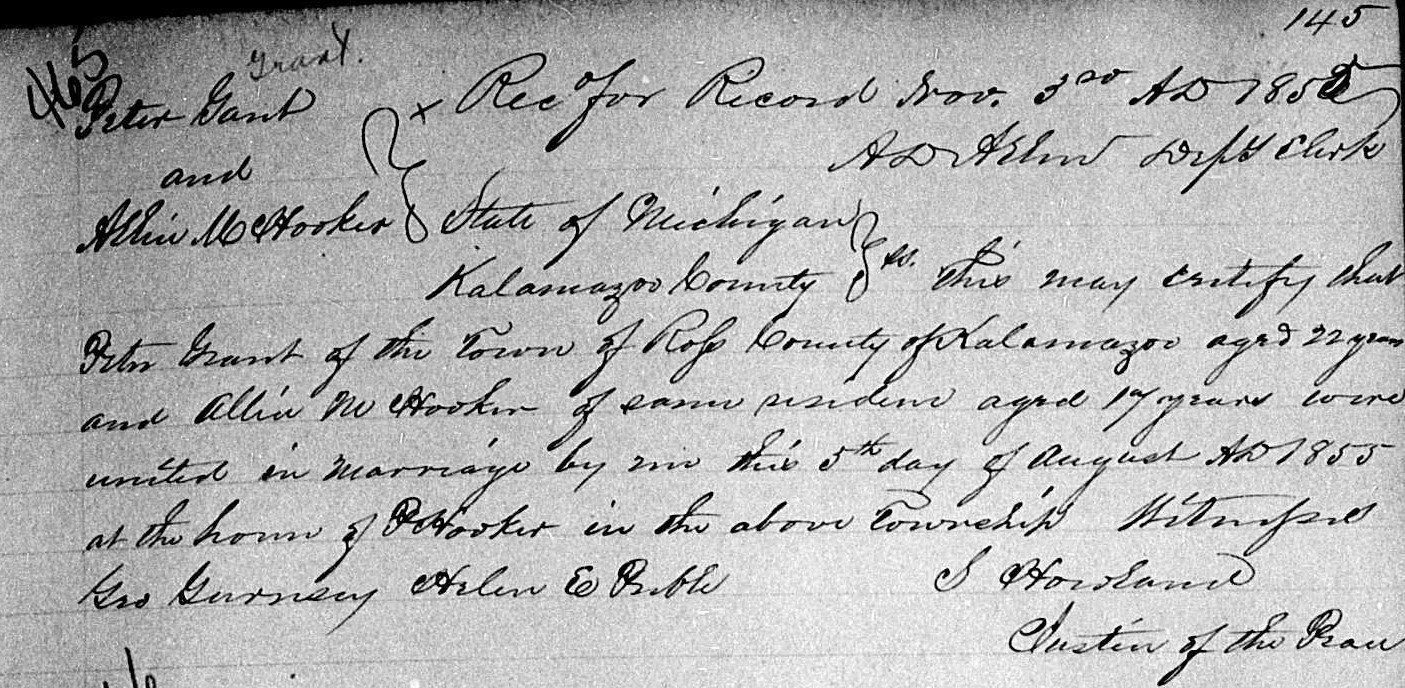 145
465
Grant.
Peter Gant × Recd for Record Nov. 3rd AD 1855
and Dept Clerk
Allie M Hooker State of Michigan
Kalamazoo County ss. This may certify that
Peter Grant of the Town of Ross County of Kalamazoo aged 22 years
and Allie M Hooker of same residence aged 17 years were
united in marriage by me this 5th day of August AD 1855
at the house of P Hooker in the above Township Witnesses
Geo Gurnsey Helen E Preble S Howland
Justice of the Peace